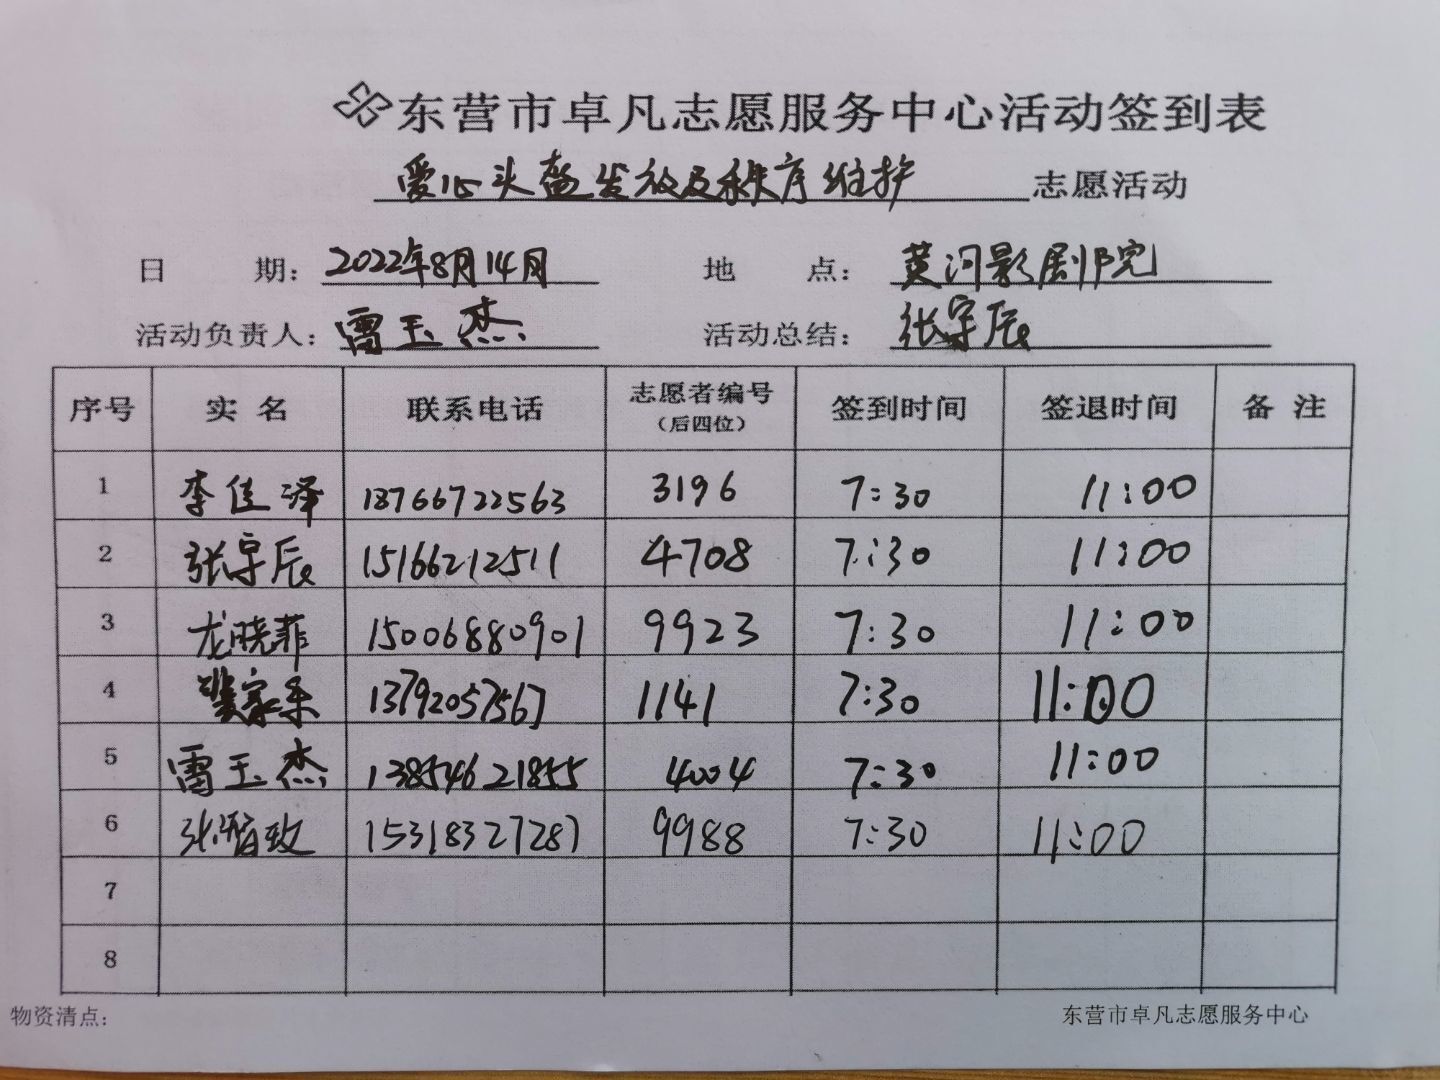 东营市卓凡志愿服务中心活动签到表
爱心头盔发放及秩序维护 志愿活动
日 期：2022年8月14日 地 点：黄河影剧院
活动负责人：雷玉杰 活动总结：张宇辰
序号 实名 联系电话 志愿者编号（后四位） 签到时间 签退时间 备注
1 李佳泽 18766722563 3196 7:30 11:00
2 张宇辰 15166212511 4708 7:30 11:00
3 龙晓菲 15006880901 9923 7:30 11:00
4 13792057567 1141 7:30 11:00
5 雷玉杰 13854621855 4004 7:30 11:00
6 15318327287 9988 7:30 11:00
7
8
物资清点： 东营市卓凡志愿服务中心